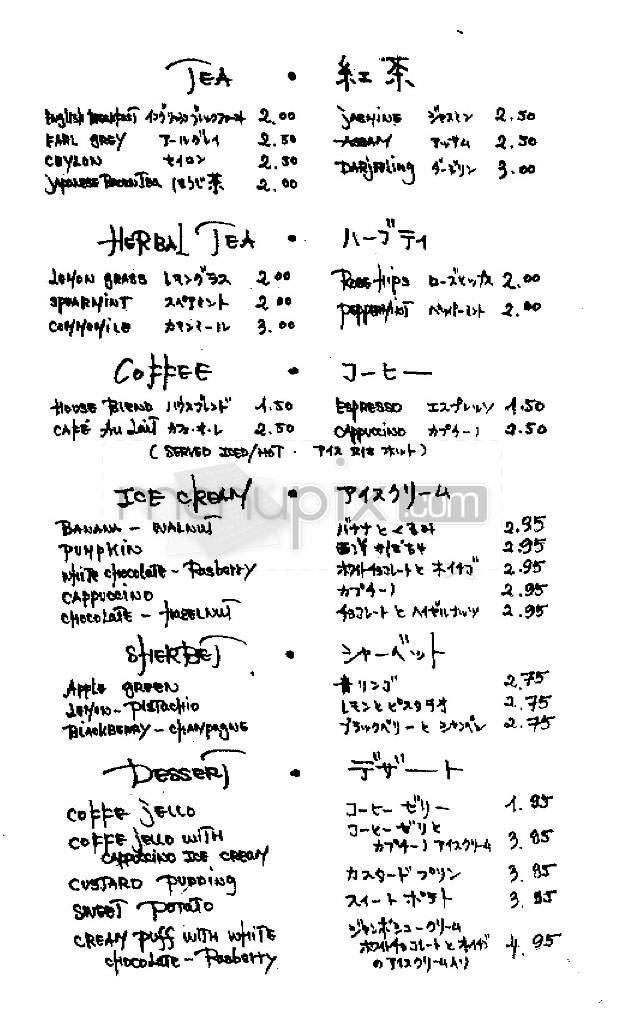 TEA • 紅茶
English Breakfast イングリッシュブレックファースト 2.00 JASMINE ジャスミン 2.50
EARL GREY アールグレイ 2.50 ASSAM アッサム 2.50
CEYLON セイロン 2.50 DARJEELING ダージリン 3.00
JAPANESE BROWN TEA ほうじ茶 2.00
HERBAL TEA • ハーブティ
LEMON GRASS レモングラス 2.00 ROSE HIPS ローズヒップス 2.00
SPEARMINT スペアミント 2.00 PEPPERMINT ペパーミント 2.00
COMMOMILE カマンミール 3.00
COFFEE • コーヒー
HOUSE BLEND ハウスブレンド 1.50 ESPRESSO エスプレッソ 1.50
CAFÉ AU LAIT カフェ・オ・レ 2.50 CAPPUCCINO カプチーノ 2.50
(SERVED ICED/HOT. アイス 又は ホット)
ICE CREAM • アイスクリーム
menupix.com
BANANA - WALNUT バナナとくるみ 2.95
PUMPKIN 西洋かぼちゃ 2.95
WHITE CHOCOLATE - RASBERRY ホワイトチョコレートと木イチゴ 2.95
CAPPUCCINO カプチーノ 2.95
CHOCOLATE - HAZELNUT チョコレートとヘイゼルナッツ 2.95
SHERBET • シャーベット
APPLE GREEN 青リンゴ 2.75
LEMON - PISTACHIO レモンとピスタチオ 2.75
BLACKBERRY - CHAMPAGNE ブラックベリーとシャンペン 2.75
DESSERT • デザート
COFFE JELLO コーヒーゼリー 1.95
COFFE JELLO WITH コーヒーゼリと
CAPPUCCINO ICE CREAM カプチーノアイスクリーム 3.95
CUSTARD PUDDING カスタードプリン 3.95
SWEET POTATO スイートポテト 3.95
CREAM PUFF WITH WHITE ジャンボシュークリーム
CHOCOLATE - RASBERRY ホワイトチョコレートと木イチゴ 4.95
のアイスクリーム入り